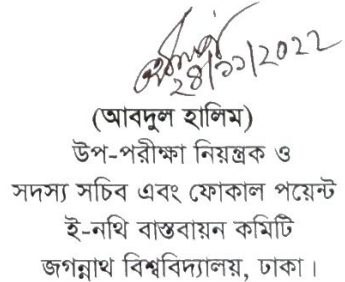 ২৪/১১/২০২২
(আবদুল হালিম)
উপ-পরীক্ষা নিয়ন্ত্রক ও
সদস্য সচিব এবং ফোকাল পয়েন্ট
ই-নথি বাস্তবায়ন কমিটি
জগন্নাথ বিশ্ববিদ্যালয়, ঢাকা।